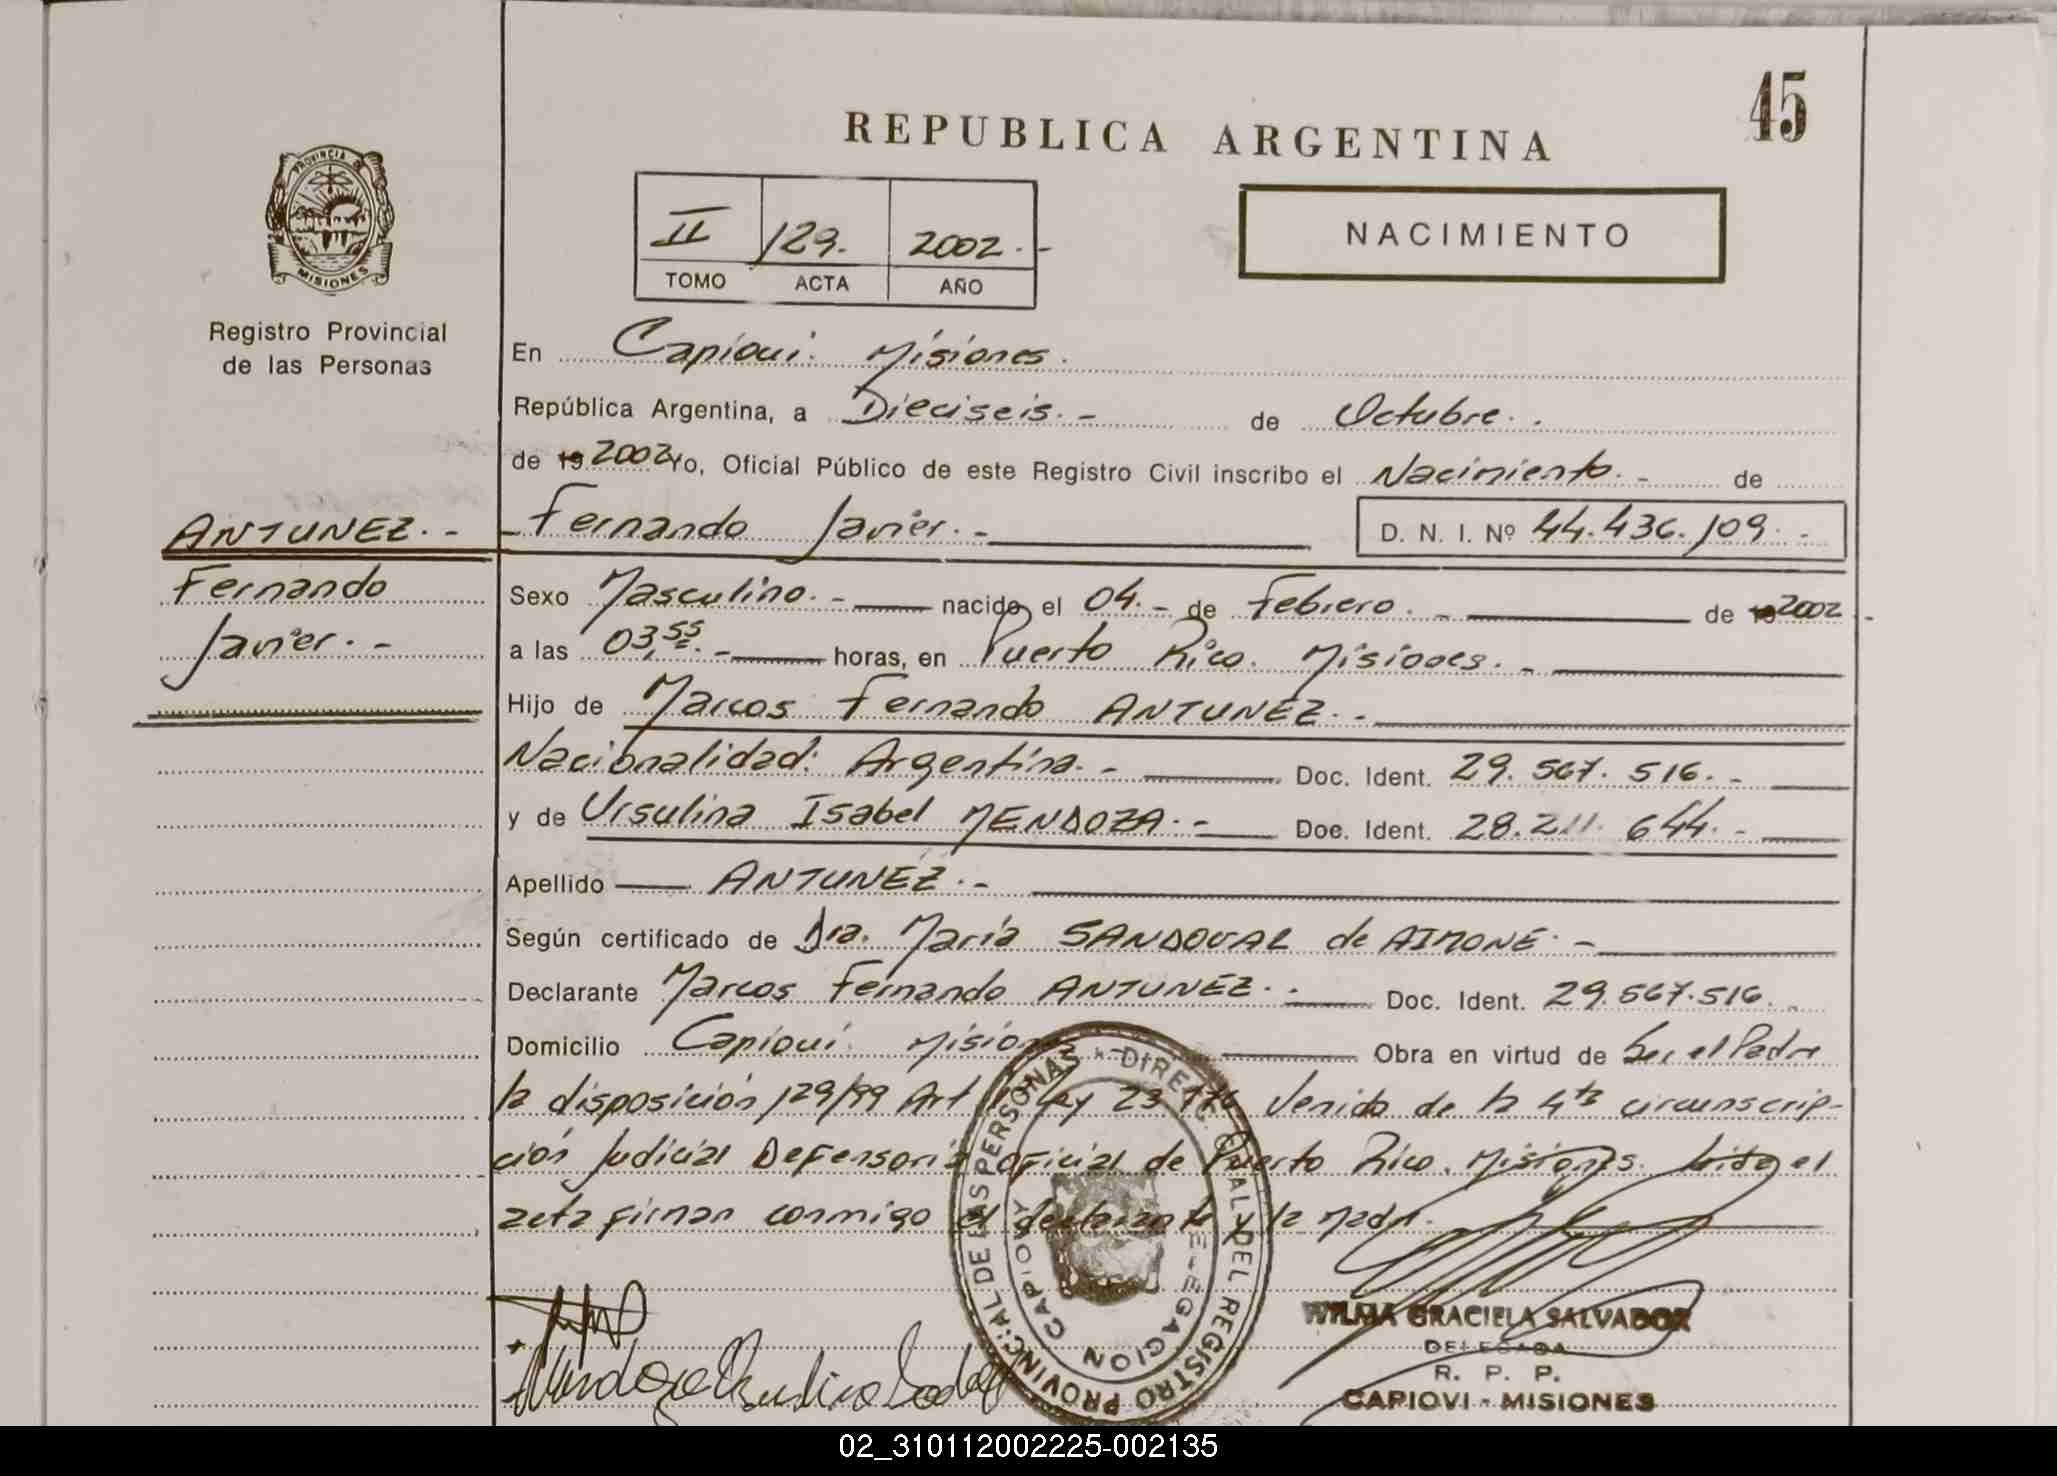 45
REPUBLICA ARGENTINA
PROVINCIA DE
MISIONES
II 129. 2002.-
TOMO ACTA AÑO
NACIMIENTO
Registro Provincial
de las Personas
En Capiovi. Misiones.
República Argentina, a Dieciseis.- de Octubre.
de 19 2002 Yo, Oficial Público de este Registro Civil inscribo el Nacimiento.- de
ANTUNEZ.- Fernando Javier.- D. N. I. Nº 44.436.109.-
Fernando
Javier.-
Sexo Masculino.- nacido el 04.- de Febrero.- de 19 2002.-
a las 03,55.- horas, en Puerto Rico. Misiones.-
Hijo de Marcos Fernando ANTUNEZ.-
Nacionalidad: Argentina.- Doc. Ident. 29.567.516.-
y de Ursulina Isabel MENDOZA.- Doc. Ident. 28.211.644.-
Apellido ANTUNEZ.-
Según certificado de Dra. María SANDOVAL de AIMONE.-
Declarante Marcos Fernando ANTUNEZ.- Doc. Ident. 29.567.516.
Domicilio Capiovi. Misiones Obra en virtud de Ser el Padre
la disposición 129/99 Art Ley 23 Venido de la 4ta circunscrip-
ción Judicial Defensoria oficial de Puerto Rico. Misiones. Leida el
acta firman conmigo el declarante y la madre.
DIREC. GRAL. DEL REGISTRO PROVINCIAL DE LAS PERSONAS
DELEGACION CAPIOVY
Mendoza Ursulina Isabel
WILMA GRACIELA SALVADOR
DELEGADA
R. P. P.
CAPIOVI - MISIONES
02_310112002225-002135